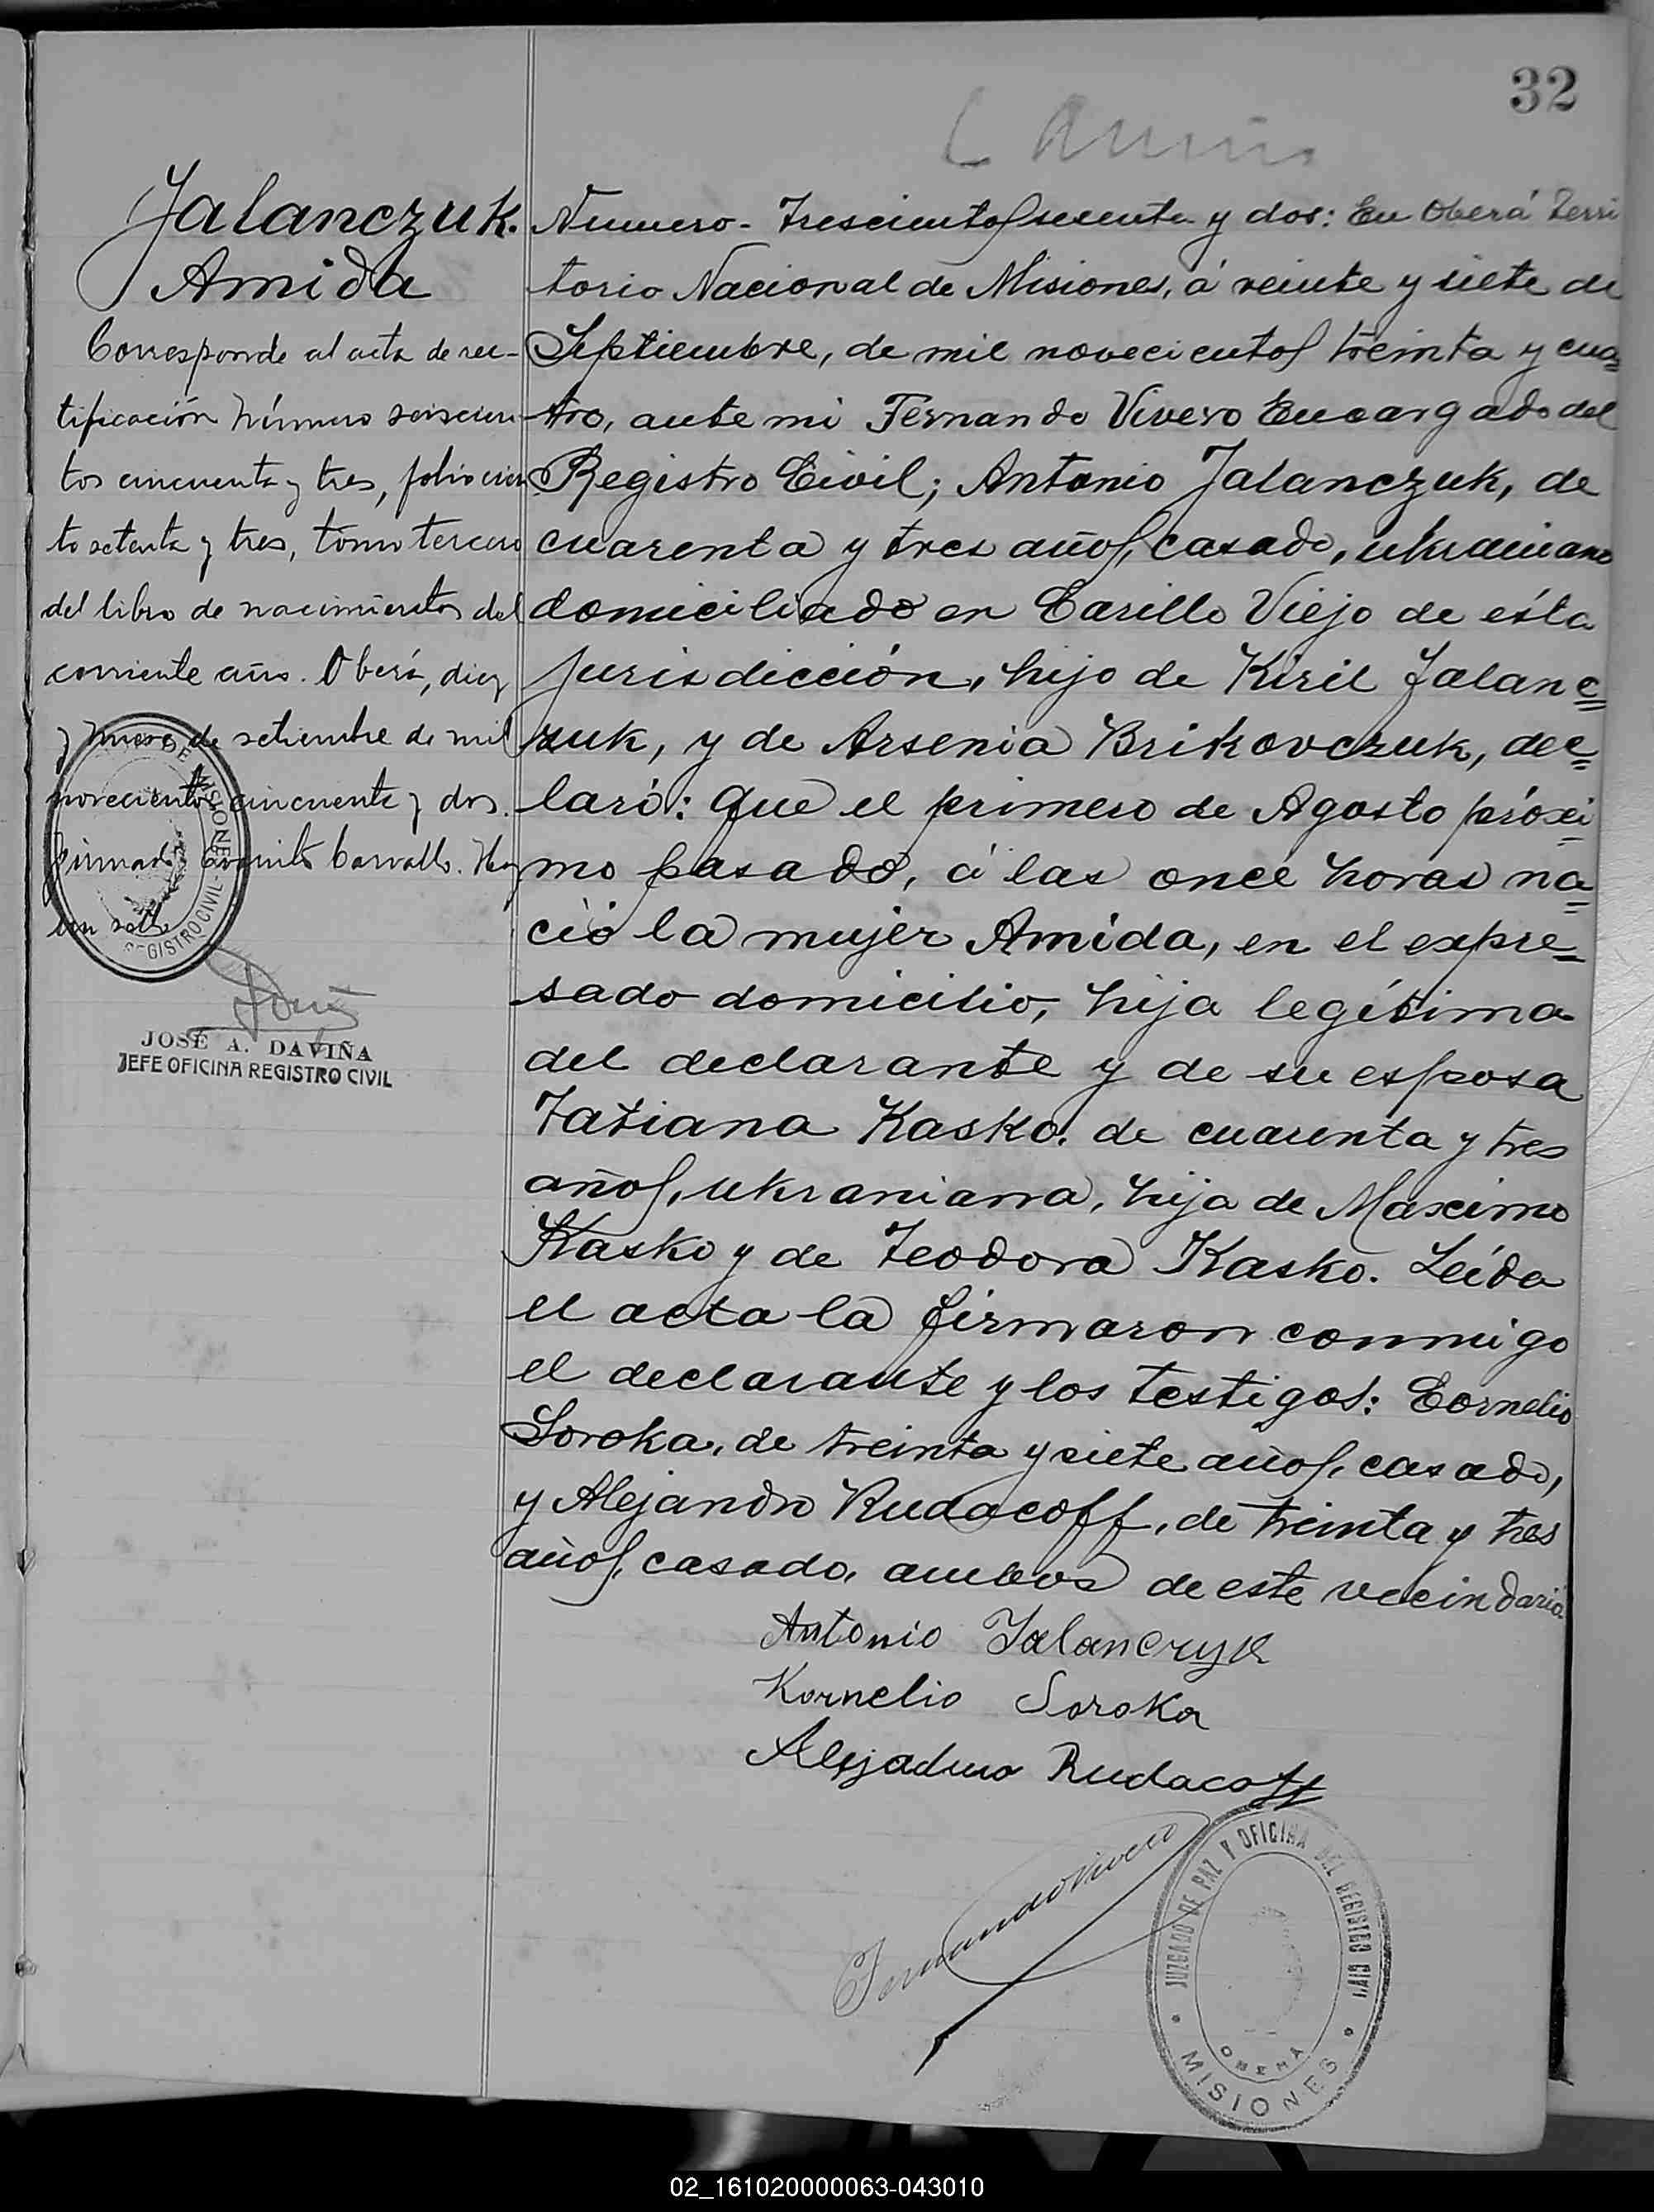 32
Jalanczuk.
Amida
Corresponde al acta de rec-
tificación Número seiscien-
tos cincuenta y tres, folio cien
to setenta y tres, tomo tercero
del libro de nacimientos del
corriente año. Oberá, diez
y nueve de setiembre de mil
novecientos cincuenta y dos.
Firmado: Carvallo. Hay
un sello
DE MISIONES - REGISTRO CIVIL
JOSÉ A. DAVIÑA
JEFE OFICINA REGISTRO CIVIL
Numero - Trescientos sesenta y dos: En Oberá Terri
torio Nacional de Misiones, á veinte y siete de
Septiembre, de mil novecientos treinta y cua=
tro, ante mi Fernando Vivero Encargado del
Registro Civil; Antonio Jalanczuk, de
cuarenta y tres años, casado, ukrainano
domiciliado en Carillo Viejo de ésta
jurisdicción, hijo de Kiril Jalanc=
zuk, y de Arsenia Brikovczuk, dec=
laró: Que el primero de Agosto próxi=
mo pasado, á las once horas na=
ció la mujer Amida, en el expre=
sado domicilio, hija legítima
del declarante y de su esposa
Tatiana Kasko. de cuarenta y tres
años, ukraniana, hija de Maximo
Kasko y de Teodora Kasko. Leída
el acta la firmaron conmigo
el declarante y los testigos: Cornelio
Soroka, de treinta y siete años, casado,
y Alejandro Rudacoff, de treinta y tres
años, casado, ambos de este vecindario.
Antonio Jalanczyk
Kornelio Soroka
Alejadnro Rudacoff
Fernando Vivero
JUZGADO DE PAZ Y OFICINA DEL REGISTRO CIVIL
OBERÁ
MISIONES
02_161020000063-043010